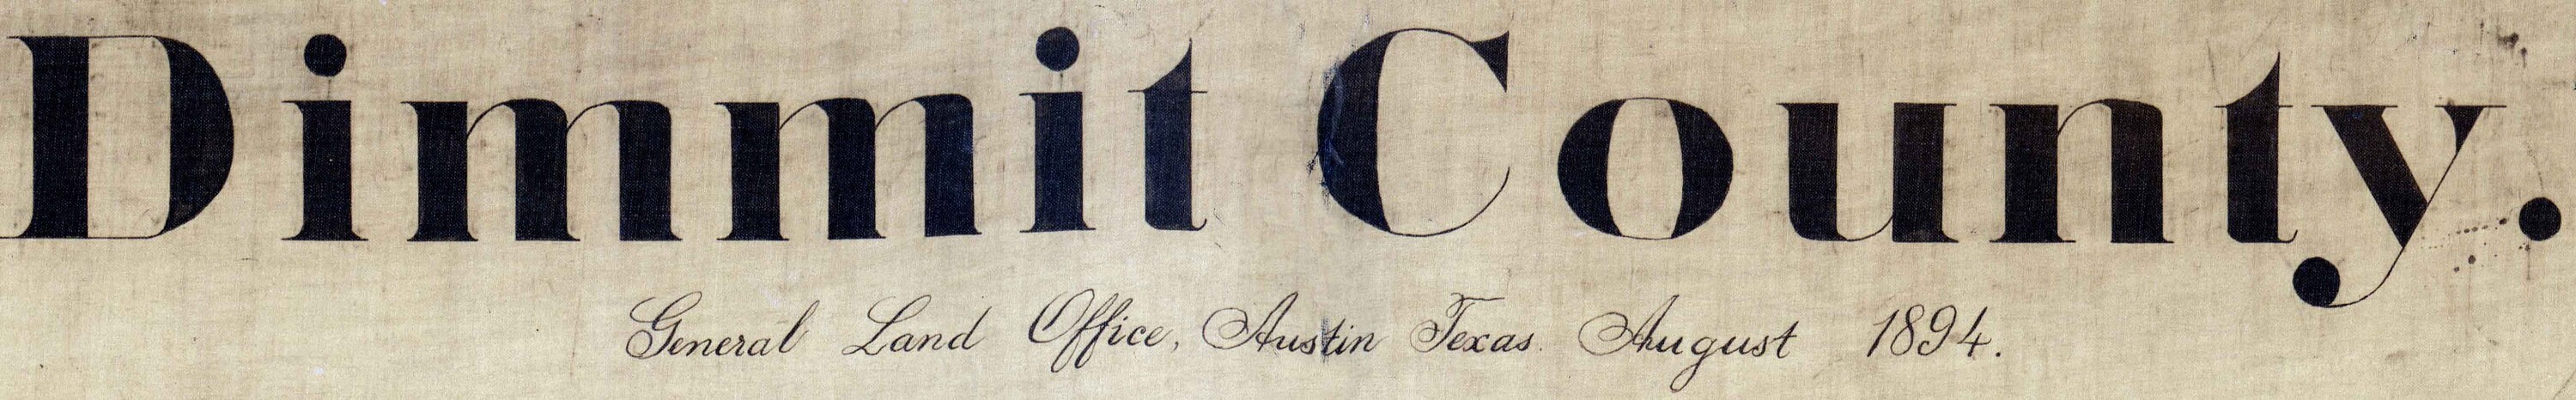 Dimmit County.
General Land Office, Austin Texas. August 1894.